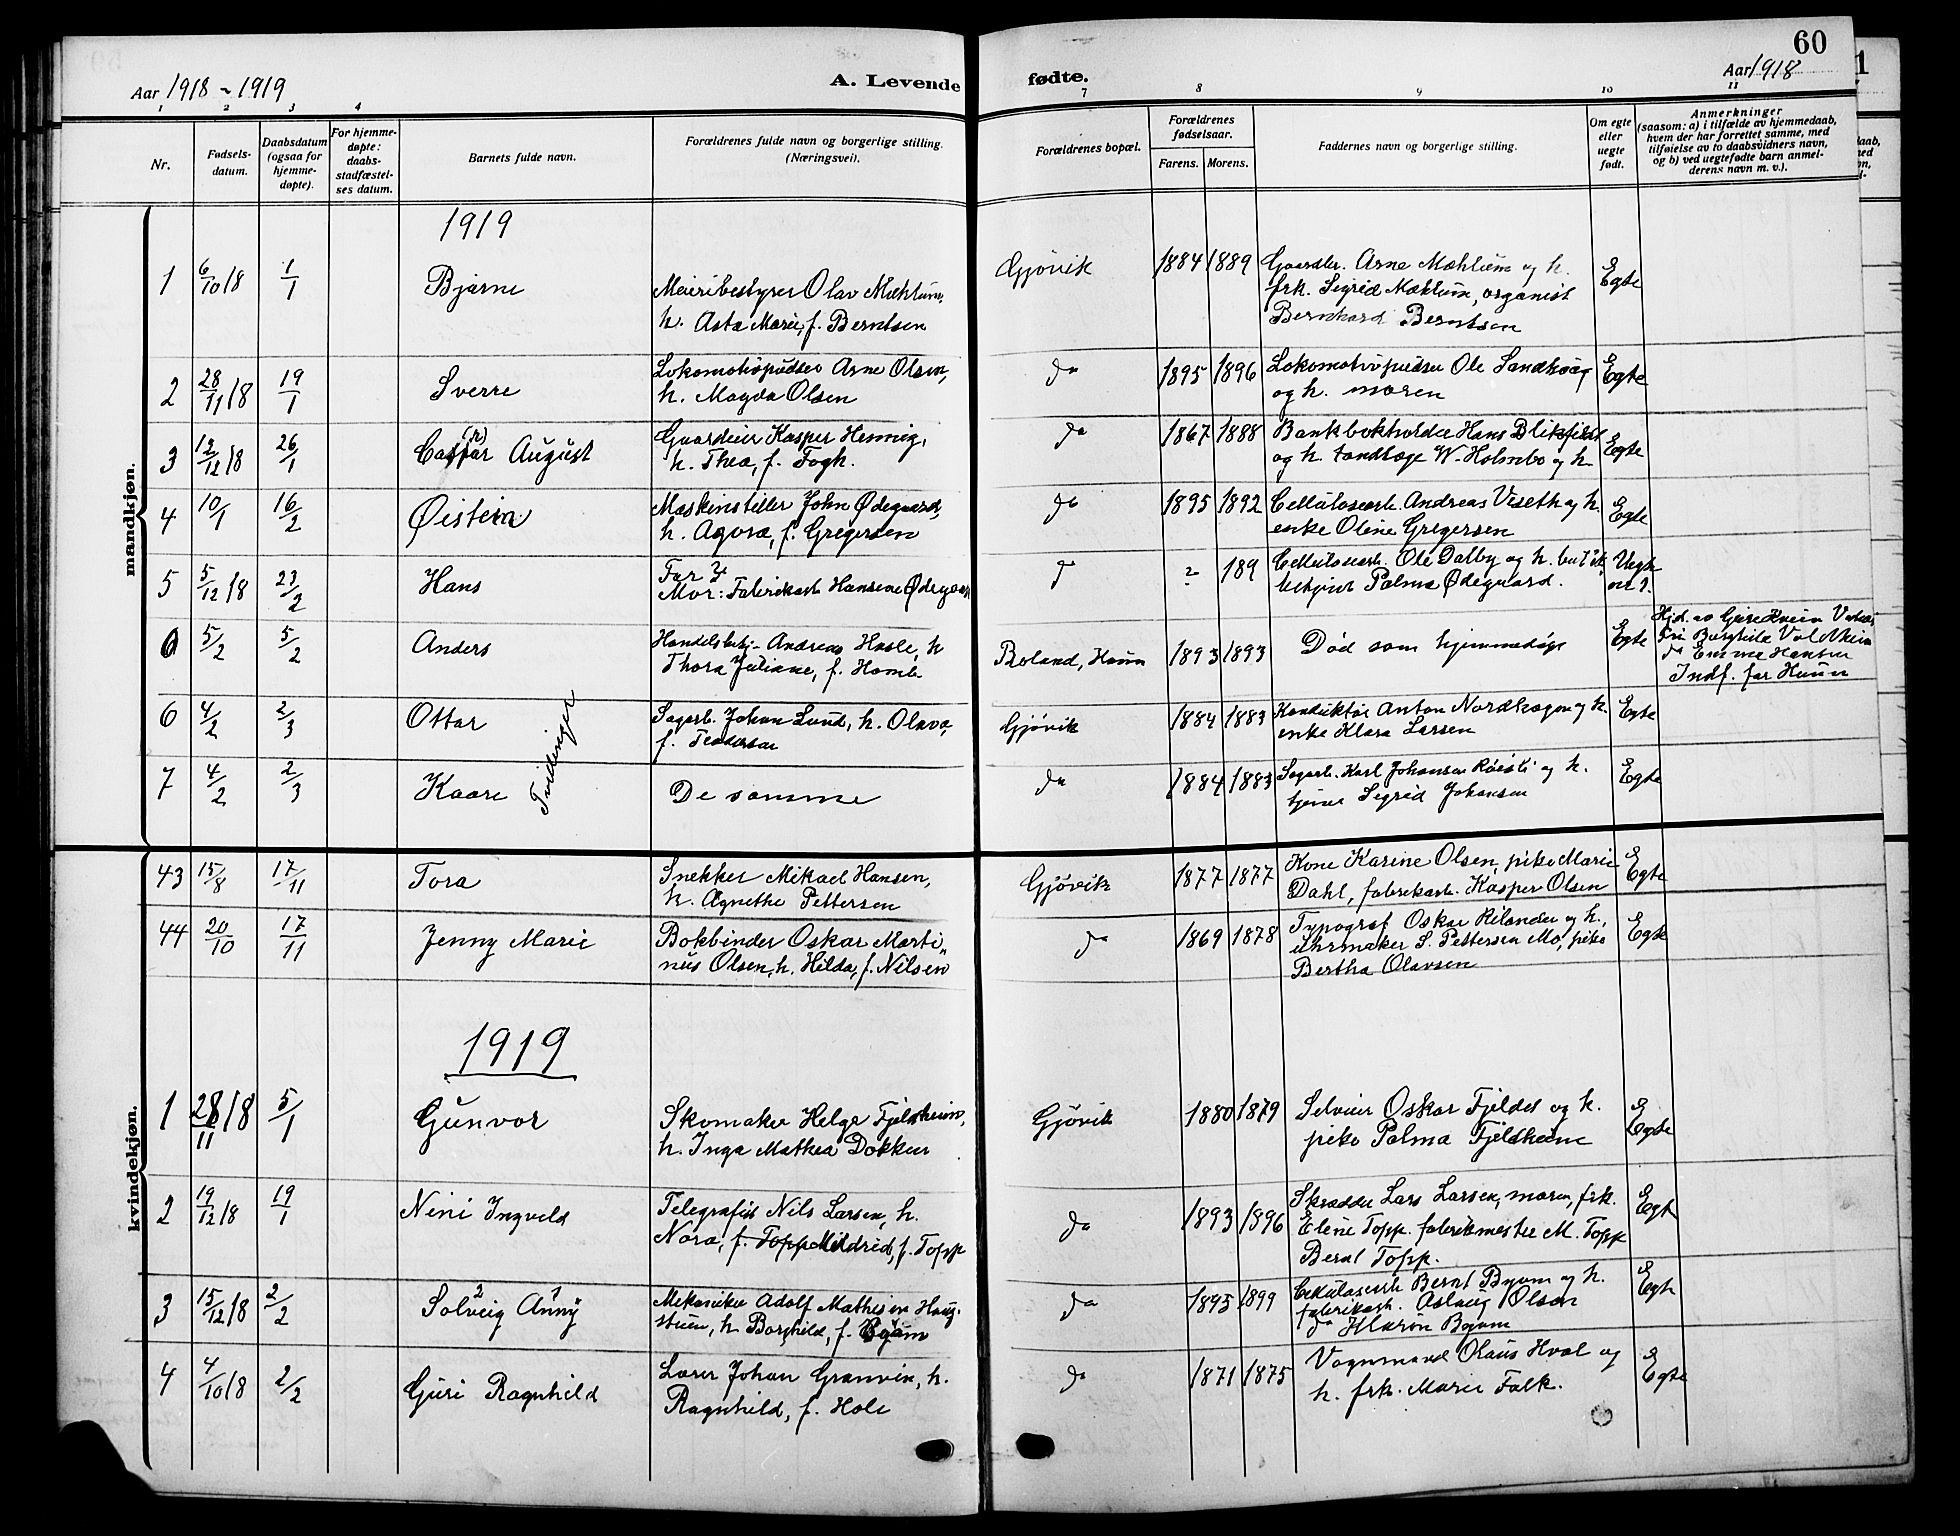 60
Aar 1918 ~ 1919
A. Levende fødte.
Aar 1918
1 2 3 4 7 8 9 10 11
Nr.
Fødsels-
datum.
Daabsdatum
(ogsaa for
hjemme-
døpte).
For hjemme-
døpte:
daabs-
stadfæstel-
ses datum.
Barnets fulde navn.
Forældrenes fulde navn og borgerlige stilling.
(Næringsvei).
Forældrenes bopæl.
Forældrenes
fødselsaar.
Farens. Morens.
Faddernes navn og borgerlige stilling.
Om egte
eller
uegte
født.
Anmerkninger
(saasom: a) i tilfælde av hjemmedaab,
hvem der har forrettet samme, med
tilføielse av to daabsvidners navn,
og b) ved uegtefødte barn anmel-
derens navn m. v.).
mandkjøn.
1919
1 6/10 18 1/1 Bjarne Meieribestyrer Olav Mæhlum,
h. Asta Marie, f. Berntsen
Gjøvik 1884 1889 Gaardbr. Arne Mæhlum og h.
frk. Sigrid Mæhlum, organist
Bernhard Berntsen
Egte
2 28/11 18 19/1 Sverre Lokomotivpudser Arne Olsen,
h. Magda Olsen
da 1895 1896 Lokomotivpudser Ole Sandkvæg
og h. moren
Egte
3 12/12 18 26/1 Caspar (h) August Gaardeier Kasper Hennig,
h. Thea, f. Fogh.
da 1867 1888 Bankbokholder Hans Blikfeldt
og h. tandlæge W. Holmbo og h.
Egte
4 10/1 16/2 Øistein Maskinstiller John Ødegaard,
h. Agora, f. Gregersen
da 1895 1892 Cellulosearb. Andreas Veseth og h.
enke Oline Gregersen
Egte
5 5/12 18 23/2 Hans Far ?
Mor: Fabrikarb. Hansine Ødegaard
? 189 Cellulosearb. Ole Dalby og h.
Palma Ødegaard.
Uegte
nr 1.
0 5/2 5/2 Anders Handelsbetj. Andreas Hasle, h.
Thora Juliane, f. Homb
Boland, Hunn 1893 1893 Død som hjemmedøpt
Egte Hjd. av
Fru Borghild
da Emma Hansen
Indf. for Hunn
6 4/2 2/3 Ottar Sagarb. Johan Lund, h. Olava,
f. Teodorsen
Gjøvik 1884 1883 Konduktør Anton Nordhagen og h.
enke Klara Larsen
Egte
Tvillinger
7 4/2 2/3 Kaare De samme
da 1884 1883 Sagarb. Karl Johansen Røisli og h.
tjener Sigrid Johansen
Egte
kvindekjøn.
43 15/8 17/11 Tora Snekker Mikael Hansen,
h. Agnethe Pettersen
Gjøvik 1877 1877 Kone Karine Olsen, pike Marie
Dahl, fabrikarb. Kasper Olsen
Egte
44 20/10 17/11 Jenny Marie Bokbinder Oskar Marti-
nus Olsen, h. Hilda, f. Nilsen
da 1869 1878 Typograf Oskar Rilander og h.,
uhrmaker S. Pettersen Mo, pike
Bertha Olavsen
Egte
1919
1 28/11 18 5/1 Gunvor Skomaker Helge Fjeldheim,
h. Inga Mathea Dokken
Gjøvik 1880 1879 Selveier Oskar Fjeldet og h.
pike Palma Fjeldheim
Egte
2 19/12 18 19/1 Nini Ingveld Telegrafist Nils Larsen, h.
Nora, f. Topp Mildrid, f. Topp
da 1893 1896 Skrædder Lars Larsen, moren, frk.
Eline Topp. fabrikmester M. Topp
Bernt Topp.
Egte
3 15/12 18 2/2 Solveig Anny Mekaniker Adolf Mathisen Haug-
stuen, h. Borghild, f. Byom
da 1895 1899 Cellulosearb. Bernt Byom og h.
fabrikarb. Aslaug Olsen
da Byom
Egte
4 4/10 18 2/2 Guri Ragnhild Lærer Johan Granvin, h.
Ragnhild, f. Hole
da 1871 1875 Vognmand Olaus Hval og
h. frk. Marie Falk.
Egte